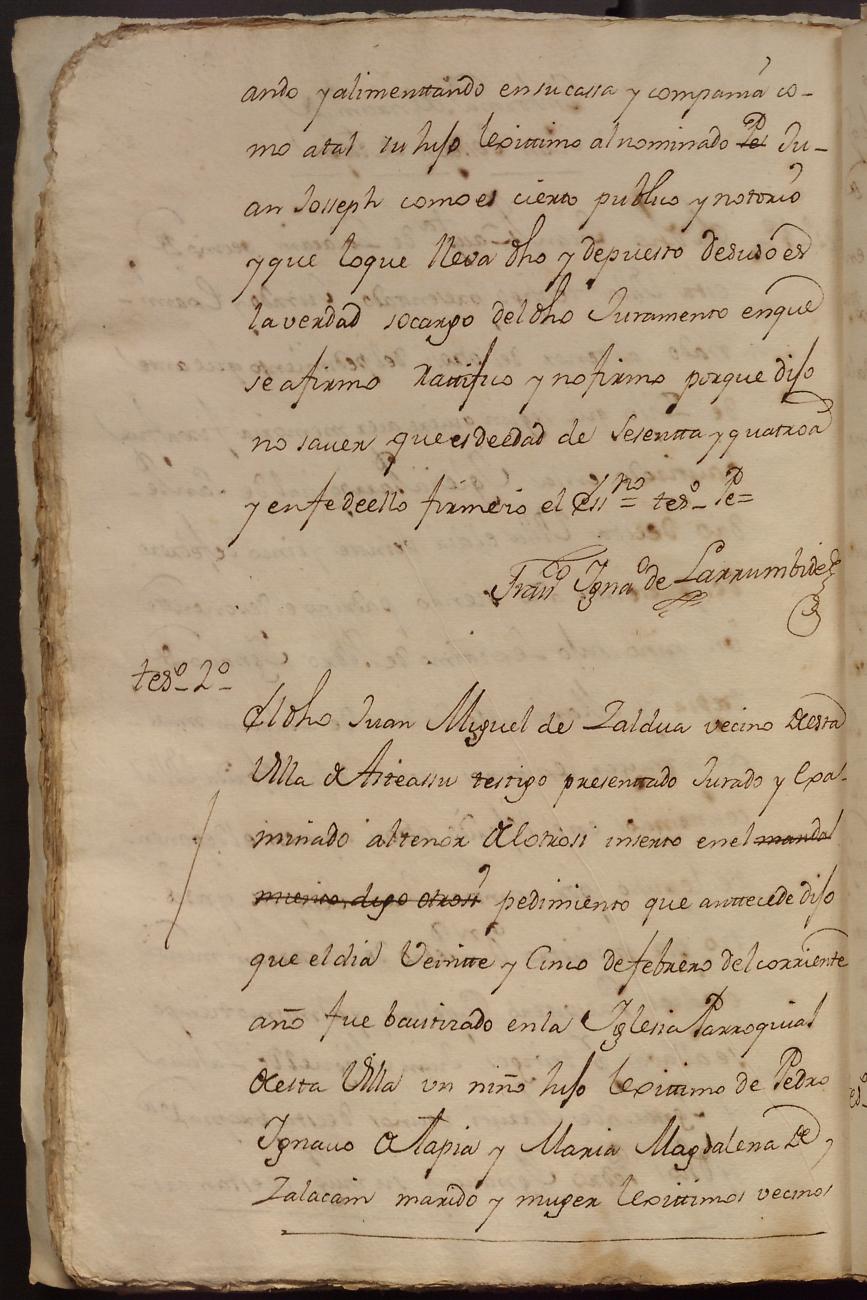 ando y alimenttando en su cassa y compañia co-
mo atal su hijo lexittimo al nominado Ju-
an Joseph como es cierto publico y notorio
y que lo que lleva dho y depuesto desuso es
la verdad so cargo del dho Juramento en que
se afirmo Rattifico y no firmo porque dijo
no saver que es de edad de sesentta y quatro a
y en fe de ello firme io el essno = tesº-
Franco Ignaº de Larrumbide
tesº- 2º-
El dho Juan Miguel de Zaldua vecino desta
Villa de Asteassu testigo presenttado Jurado y Exa-
minado al tenor del otrosi inserto en el mandal
miento, digo otrosi pedimiento que anttecede dijo
que el dia Veintte y Cinco de febrero del corriente
año fue bautizado en la Iglesia Parroquial
desta Villa un niño hijo lexittimo de Pedro
Ignacio de Tapia y Maria Magdalena de
Zalacain marido y muger lexittimos vecinos